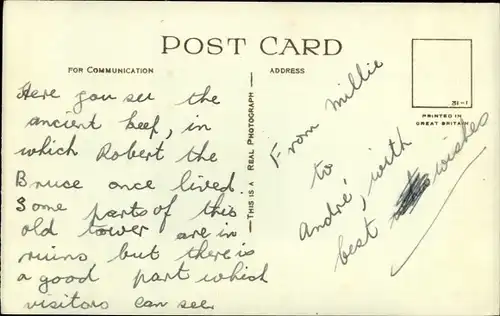 POST CARD
FOR COMMUNICATION
ADDRESS
Here you see the
ancient keep, in
which Robert the
Bruce once lived.
Some parts of this
old tower are in
ruins, but there is
a good part which
visitors can see.
THIS IS A REAL PHOTOGRAPH
From Millie
to
André, with
best wishes
31-1
PRINTED IN
GREAT BRITAIN